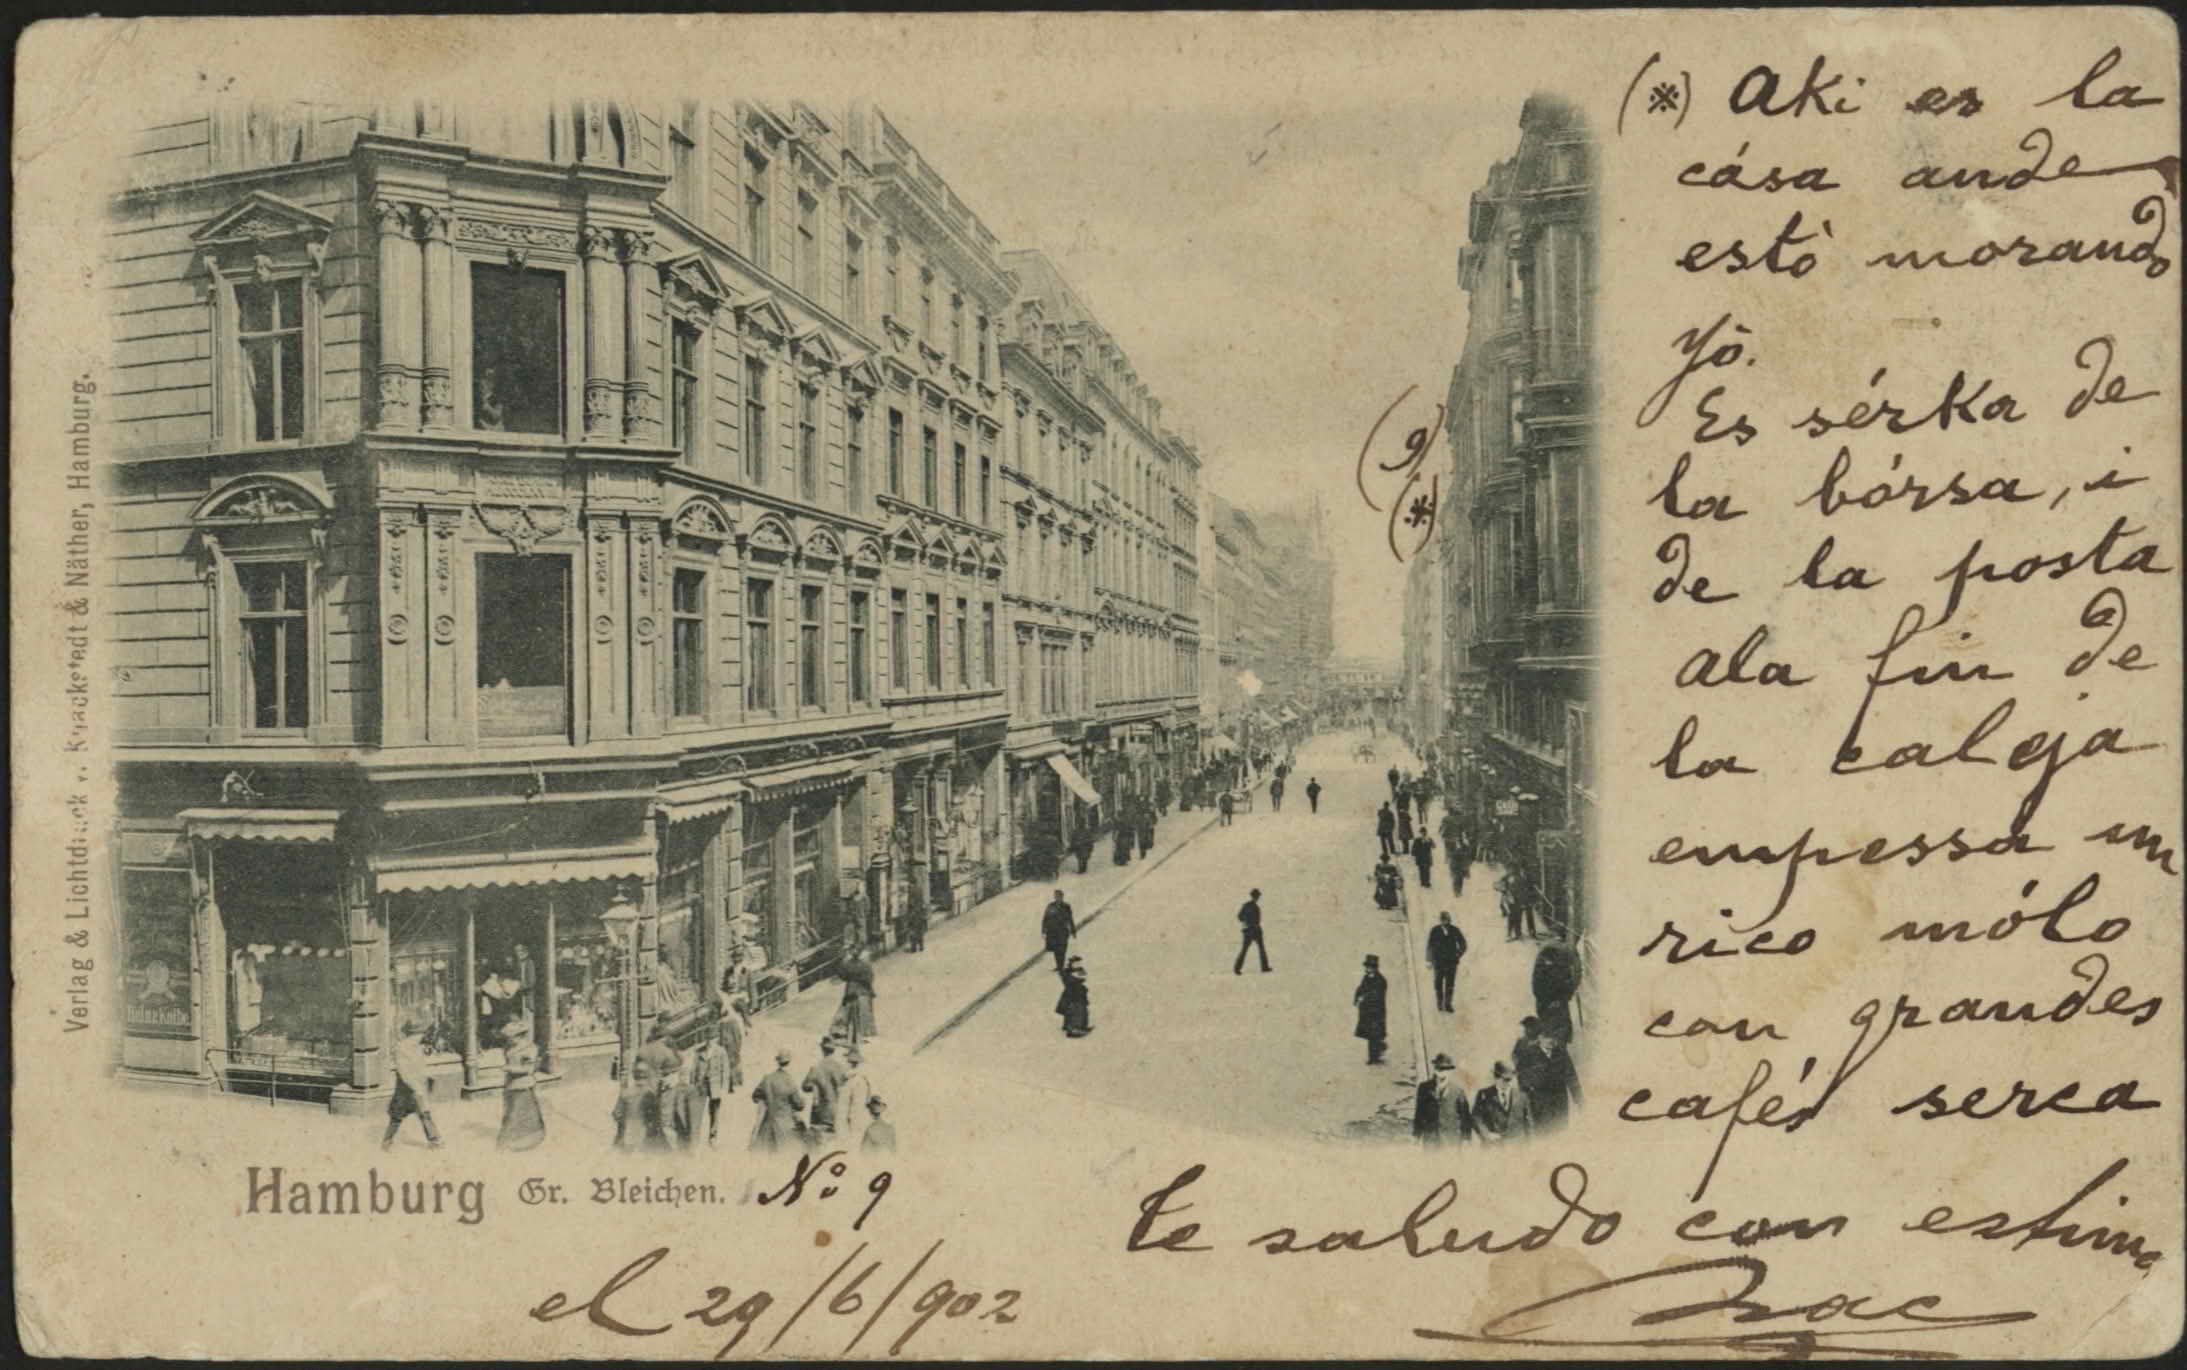 (※) Aki es la
cása ande
estò morando
yò.
Es sérka de
la bórsa, i
de la posta
ala fin de
la caleja
empessa un
rico mólo
con grandes
cafés serca
te saludo con estima
(9)
(※)
Hamburg Gr. Bleichen. No 9
el 29/6/902
Verlag & Lichtdruck v. Knackstedt & Näther, Hamburg.